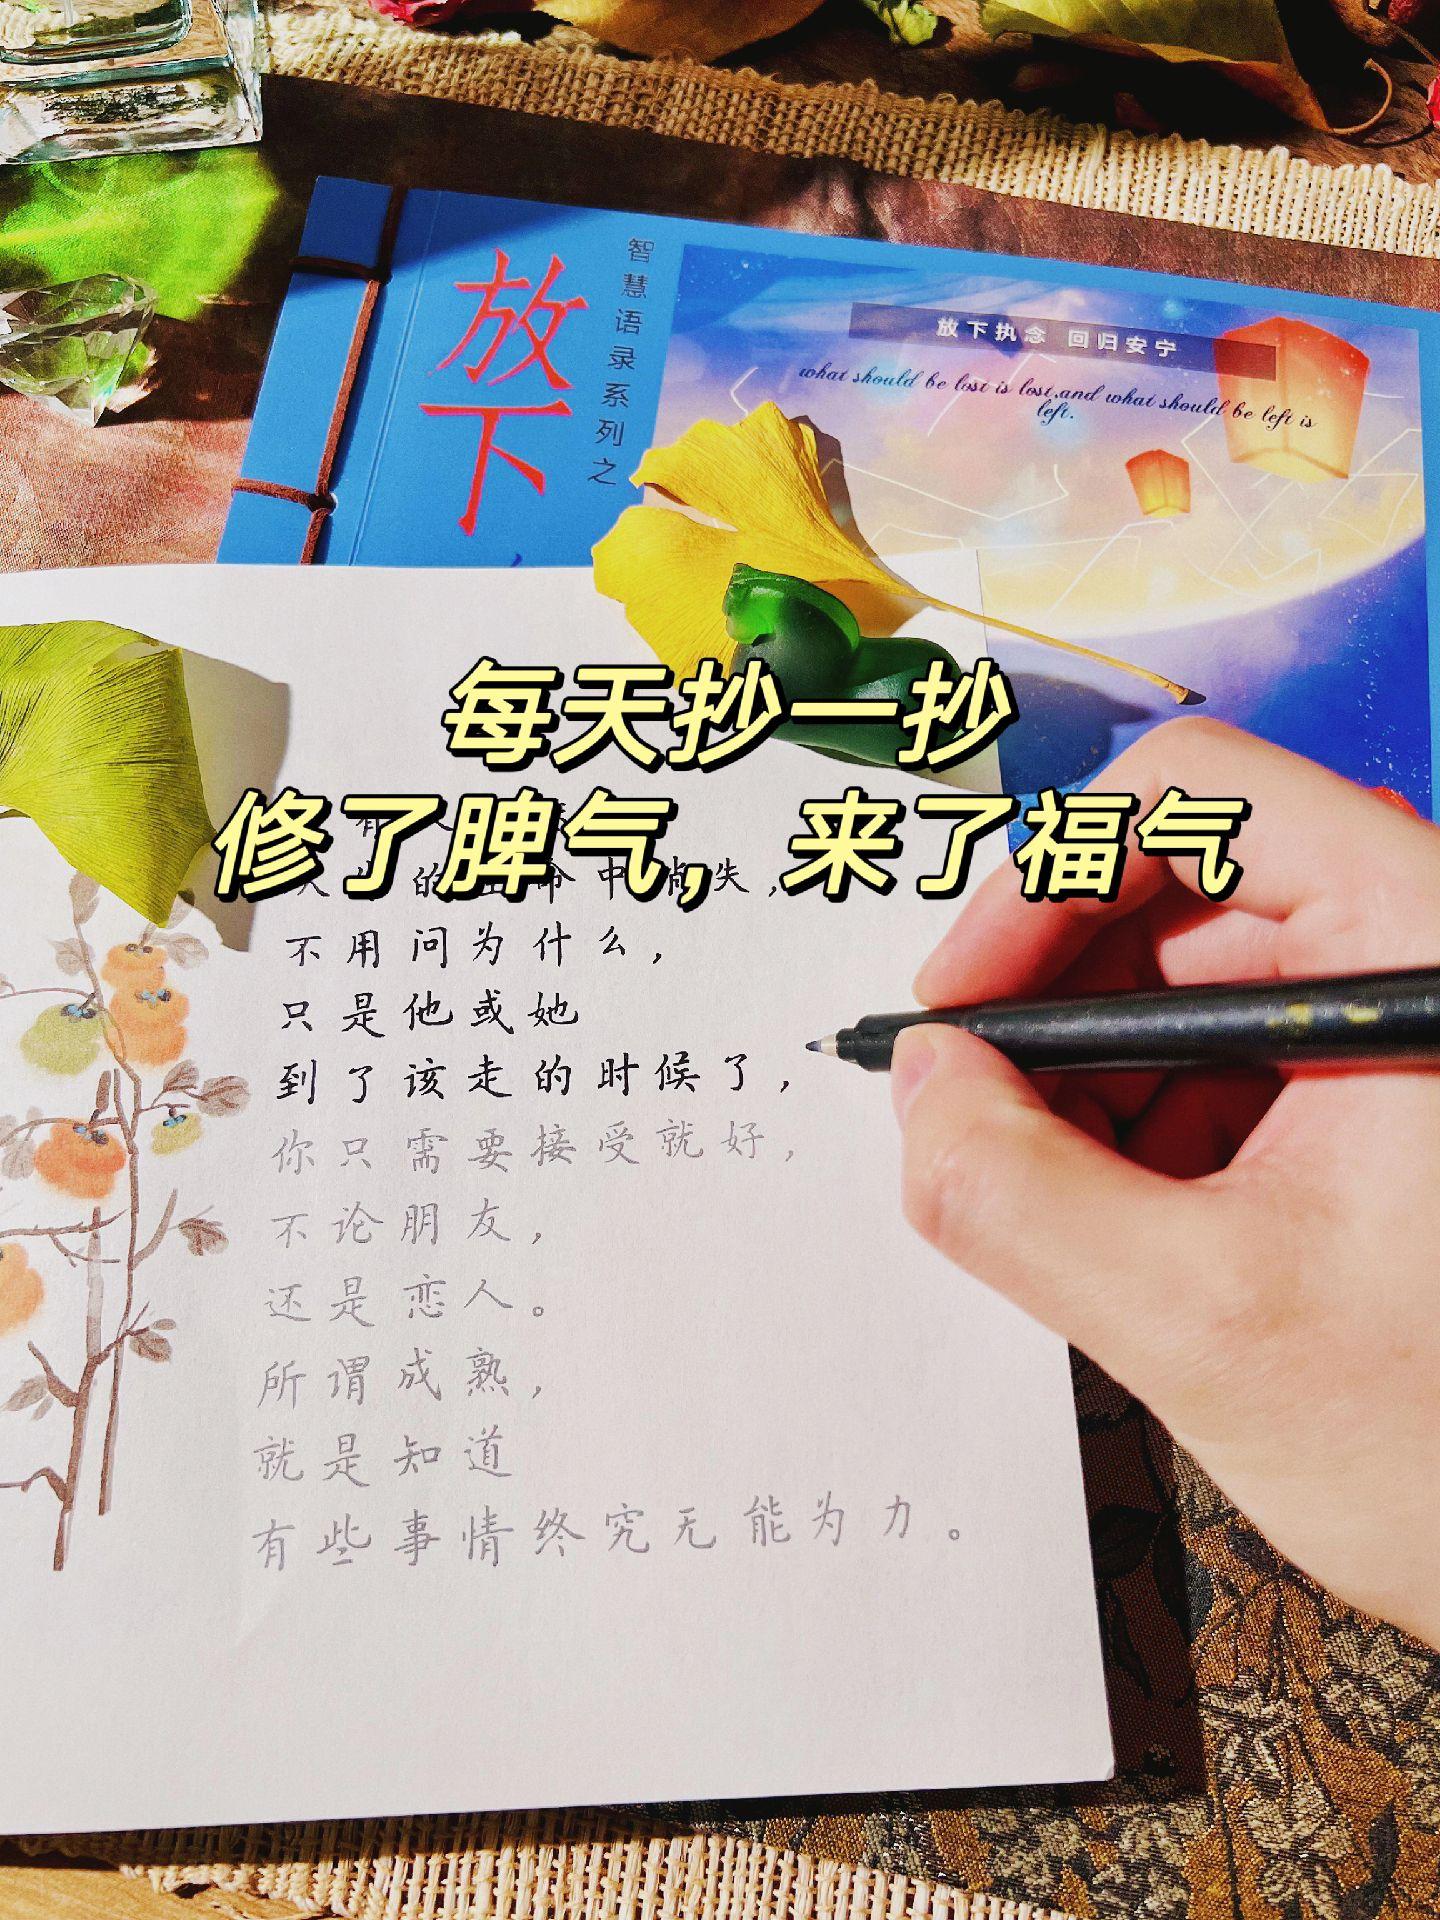 放下
智慧语录系列之
放下执念 回归安宁
what should be lost is lost,and what should be left is
left.
每天抄一抄
修了脾气，来了福气
的 命中消失，
不用问为什么，
只是他或她
到了该走的时候了，
你只需要接受就好，
不论朋友，
还是恋人。
所谓成熟，
就是知道
有些事情终究无能为力。